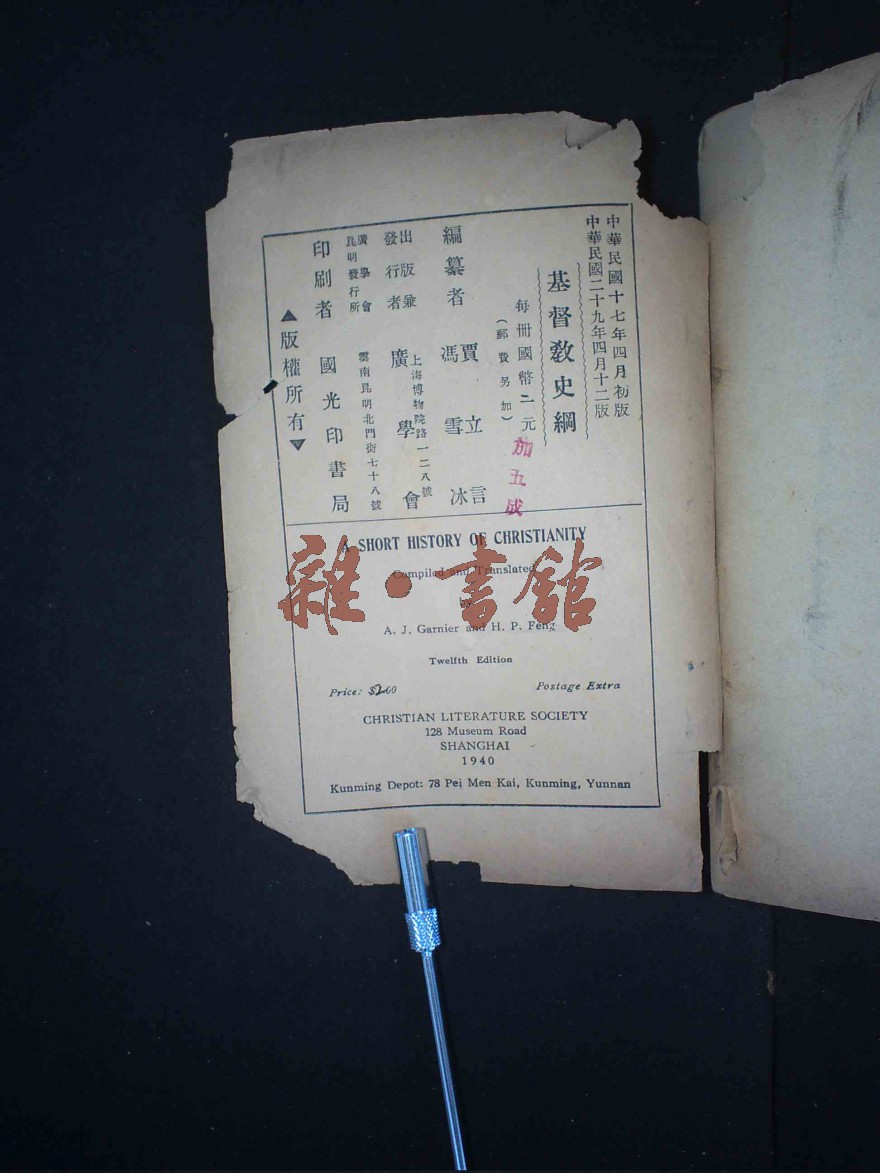 中華民國十七年四月初版
中華民國二十九年四月十二版
基督教史綱
每冊國幣二元
加五成
(郵費另加)
編纂者
賈立言
馮雪冰
出版兼
發行者
上海博物院路一二八號
廣學會
廣學會
昆明發行所
雲南昆明北門街七十八號
印刷者 國光印書局
▲版權所有▼
A SHORT HISTORY OF CHRISTIANITY
Compiled and Translated
by
A. J. Garnier and H. P. Feng
Twelfth Edition
Price: $2.00 Postage Extra
CHRISTIAN LITERATURE SOCIETY
128 Museum Road
SHANGHAI
1940
Kunming Depot: 78 Pei Men Kai, Kunming, Yunnan
雜·書館